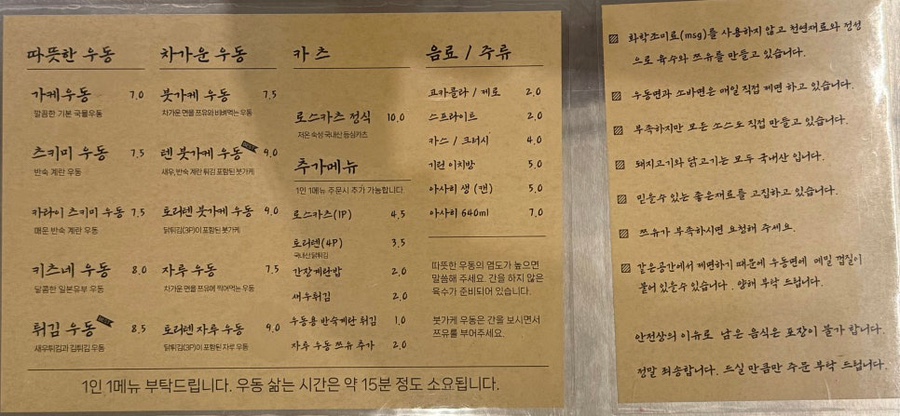 따뜻한 우동
가케우동 7.0
깔끔한 기본 국물우동
츠키미 우동 7.5
반숙 계란 우동
카라이 츠키미 우동 7.5
매운 반숙 계란 우동
키츠네 우동 8.0
달콤한 일본유부 우동
튀김 우동 8.5
새우튀김과 김튀김 우동
차가운 우동
붓가케 우동 7.5
차가운 면을 쯔유와 비벼먹는 우동
텐 붓가케 우동 9.0
새우, 반숙 계란 튀김 포함된 붓가케
토리텐 붓가케 우동 9.0
닭튀김(3P)이 포함된 붓가케
자루 우동 7.5
차가운 면을 쯔유에 찍어먹는 우동
토리텐 자루 우동 9.0
닭튀김(3P)이 포함된 자루 우동
카츠
로스카츠 정식 10.0
저온 숙성 국내산 등심카츠
추가메뉴
1인 1메뉴 주문시 추가 가능합니다.
로스카츠(1P) 4.5
토리텐(4P) 3.5
국내산 닭튀김
간장계란밥 2.0
새우튀김 2.0
우동용 반숙계란 튀김 1.0
자루 우동 쯔유 추가 2.0
음료 / 주류
코카콜라 / 제로 2.0
스프라이트 2.0
카스 / 크러시 4.0
기린 이치방 5.0
아사히 생 (캔) 5.0
아사히 640ml 7.0
따뜻한 우동의 염도가 높으면
말씀해 주세요. 간을 하지 않은
육수가 준비되어 있습니다.
붓가케 우동은 간을 보시면서
쯔유를 부어주세요.
1인 1메뉴 부탁드립니다. 우동 삶는 시간은 약 15분 정도 소요됩니다.
화학조미료(msg)를 사용하지 않고 천연재료와 정성
으로 육수와 쯔유를 만들고 있습니다.
우동면과 소바면은 매일 직접 제면 하고 있습니다.
부족하지만 모든 소스도 직접 만들고 있습니다.
돼지고기와 닭고기는 모두 국내산 입니다.
믿을수 있는 좋은재료를 고집하고 있습니다.
쯔유가 부족하시면 요청해 주세요.
같은공간에서 제면하기 때문에 우동면에 메밀 껍질이
붙어 있을수 있습니다. 양해 부탁 드립니다.
안전상의 이유로 남은 음식은 포장이 불가 합니다.
정말 죄송합니다. 드실 만큼만 주문 부탁 드립니다.